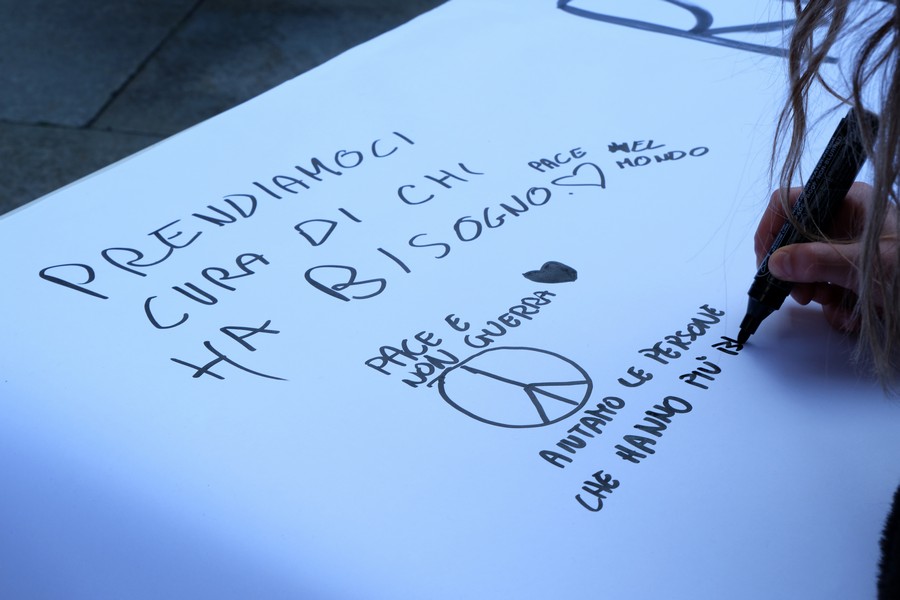 PRENDIAMOCI
CURA DI CHI
HA BISOGNO
PACE NEL
MONDO
PACE E
NON GUERRA
AIUTAMO LE PERSONE
CHE HANNO PIÙ